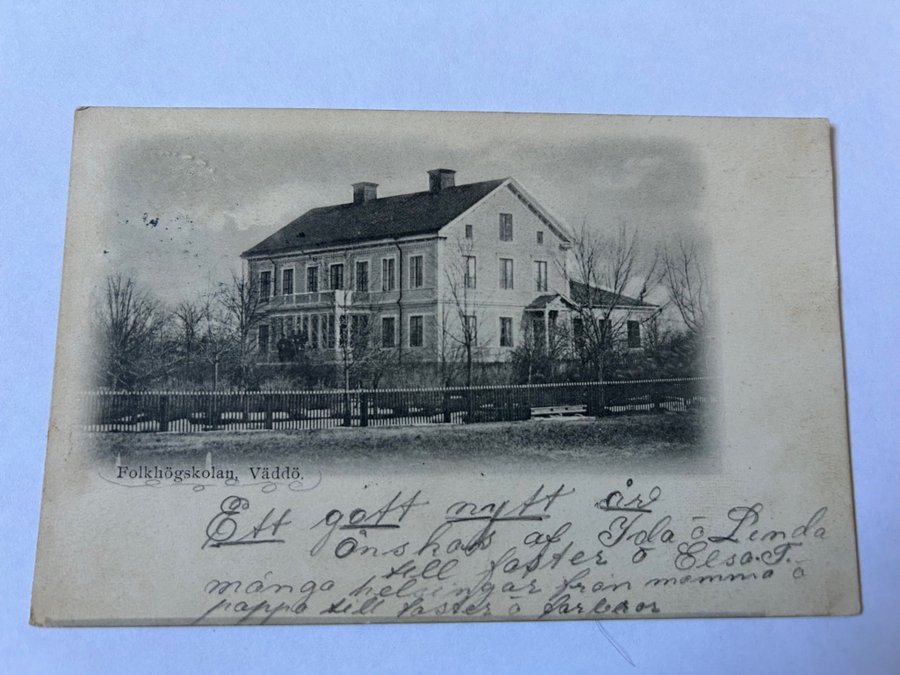 Folkhögskolan, Väddö.
Ett gott nytt år
önskas af Ida o Linda
till faster o Elsa. T.
många helsingar från mamma o
pappa till faster o farbror